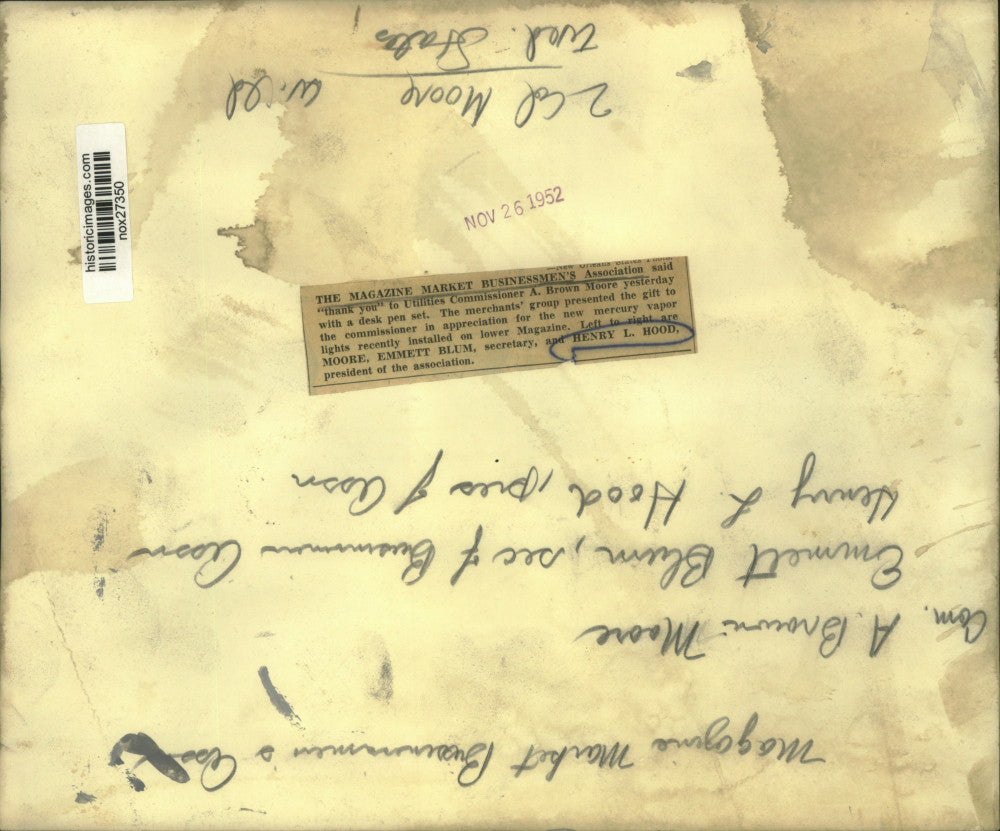 Wed. States
2 Col Moore W. ed
historicimages.com
nox27350
NOV 26 1952
—New Orleans States Photo.
THE MAGAZINE MARKET BUSINESSMEN'S Association said
"thank you" to Utilities Commissioner A. Brown Moore yesterday
with a desk pen set. The merchants' group presented the gift to
the commissioner in appreciation for the new mercury vapor
lights recently installed on lower Magazine. Left to right are
MOORE, EMMETT BLUM, secretary, and HENRY L. HOOD,
president of the association.
Magazine Market Businessmen's Assn
Com. A. Brown Moore
Emmett Blum, sec of Businessmen Assn
Henry L. Hood, pres of Assn